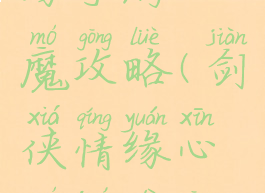 mó gōng lüè jiàn
魔攻略(剑
xiá qíng yuán xīn
侠情缘心